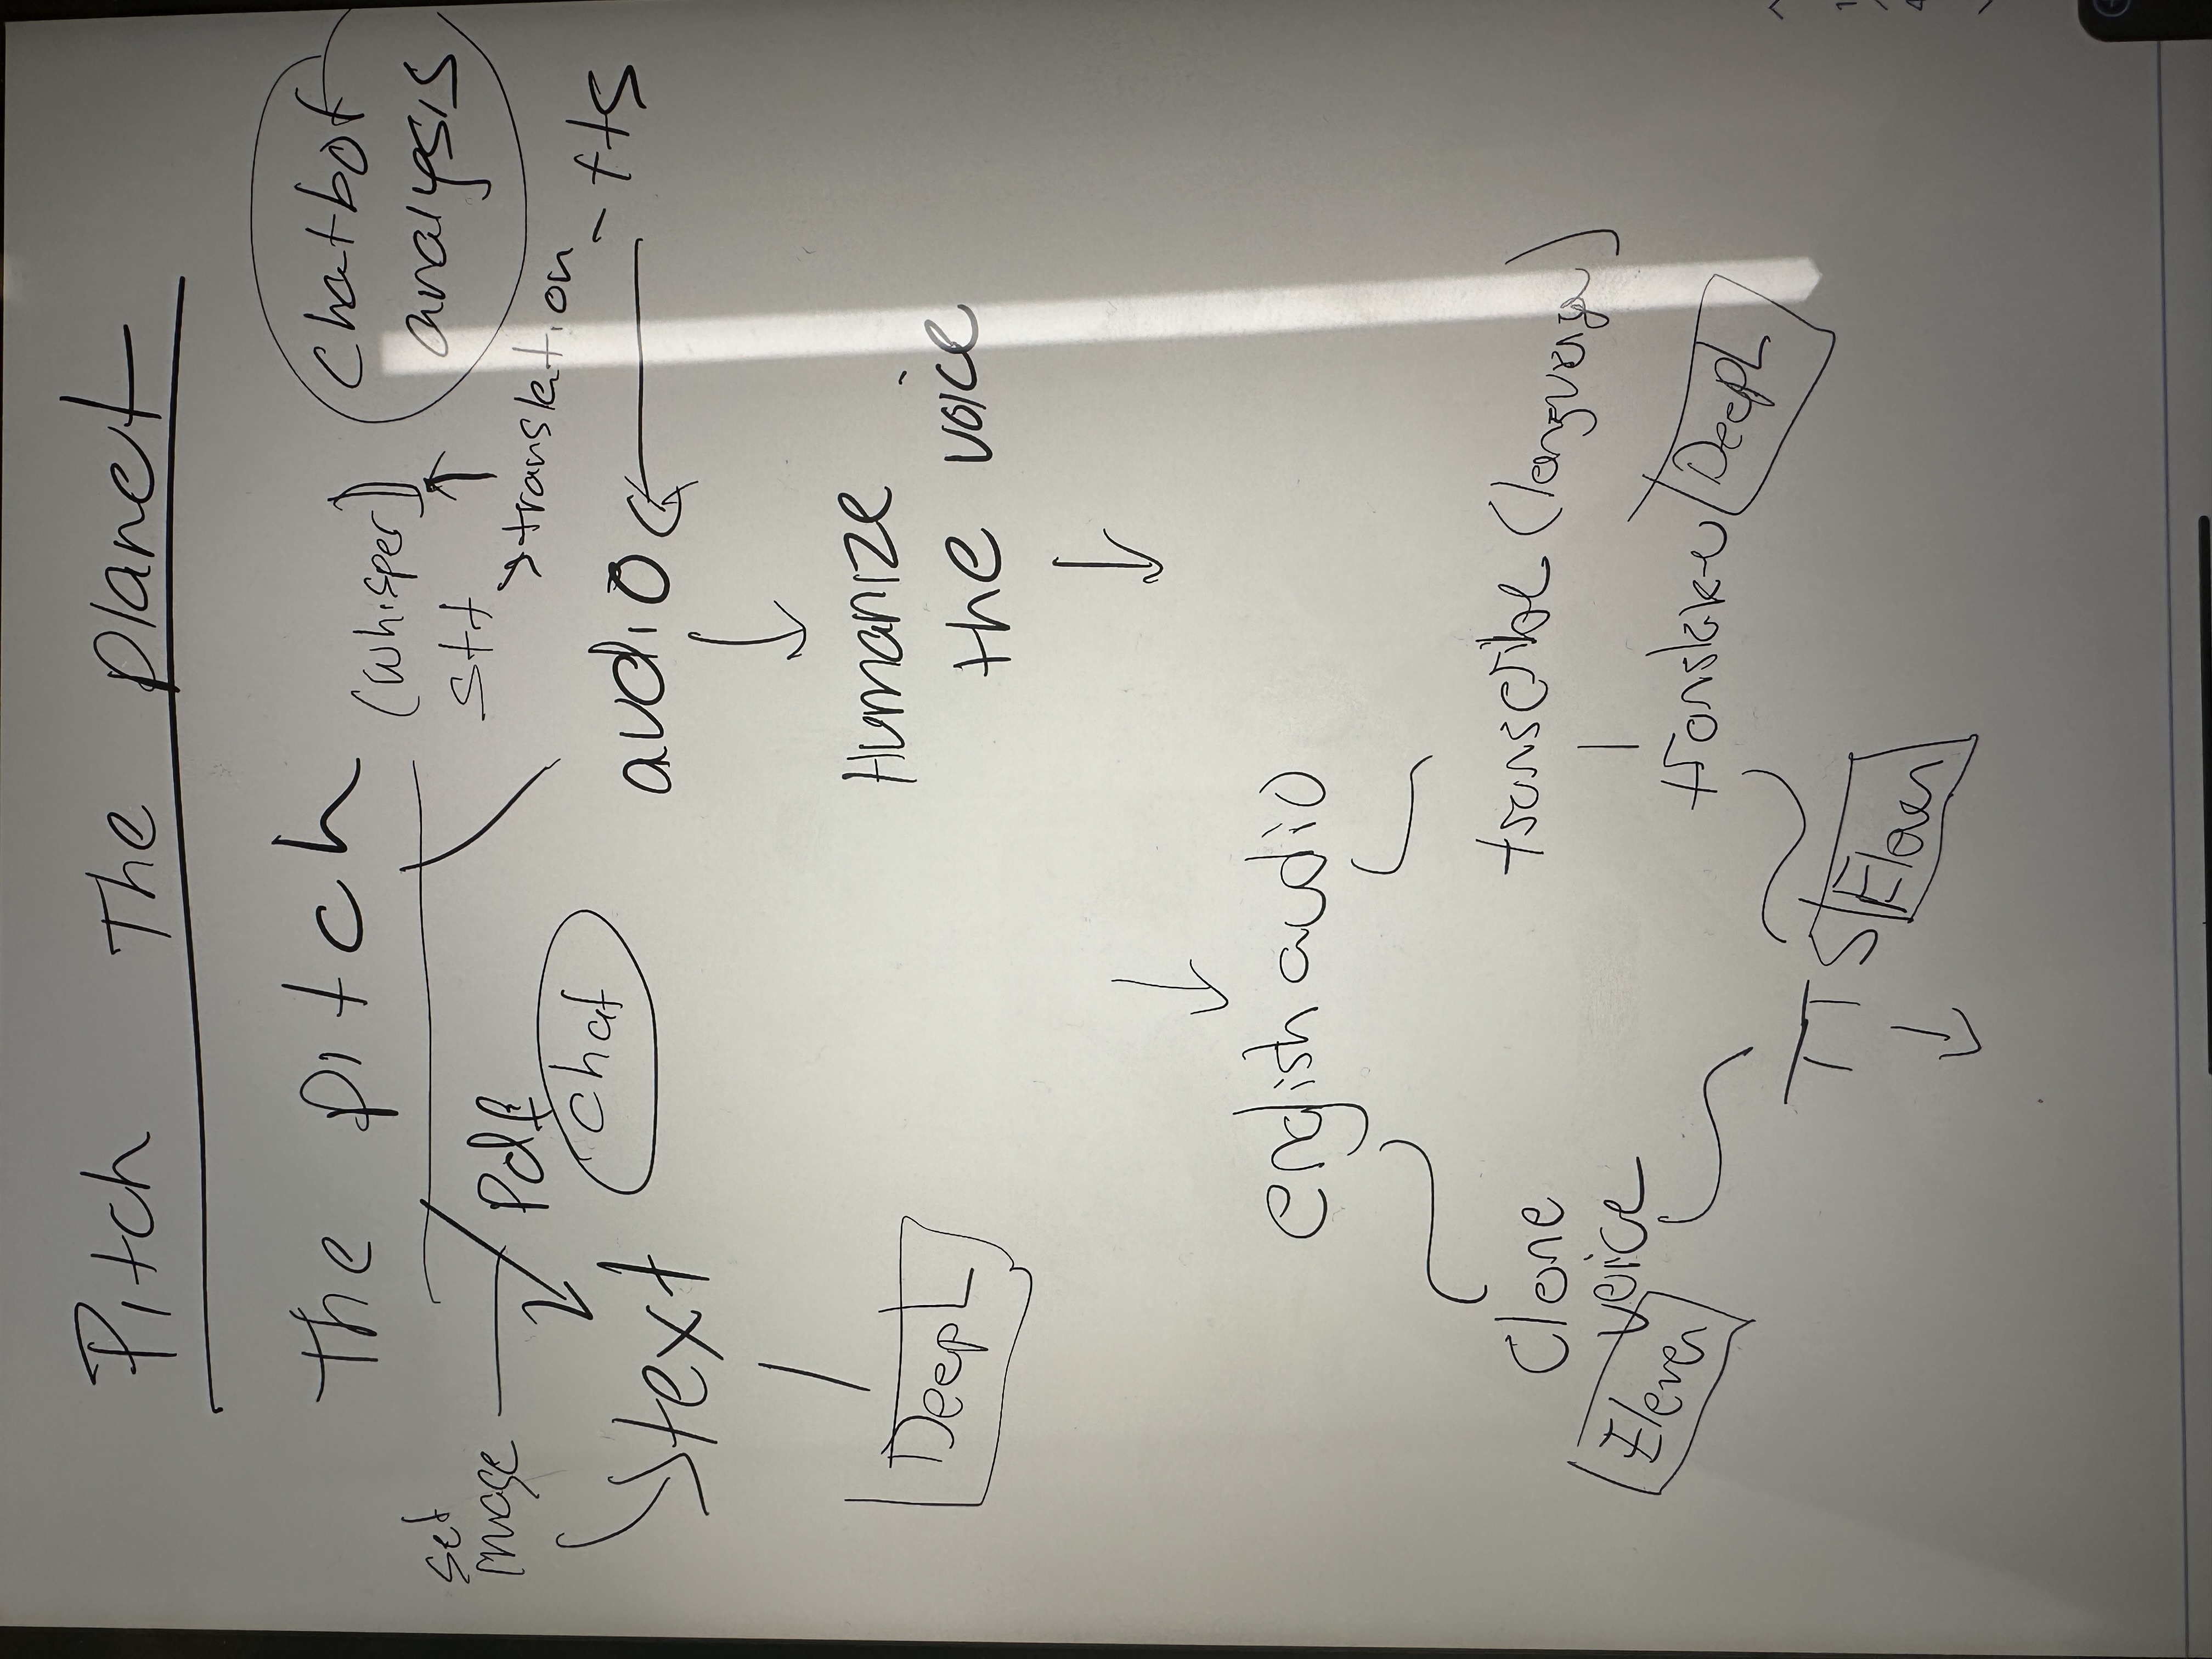 Pitch The Planet
the pitch
(whisper)
stt
Chatbot
analysis
>translation - tts
set
image
Pdf
Chat
text
audio
DeepL
Humanize
the voice
english audio
Clone
voice
Eleven
transcribe (language)
translate
DeepL
TTS